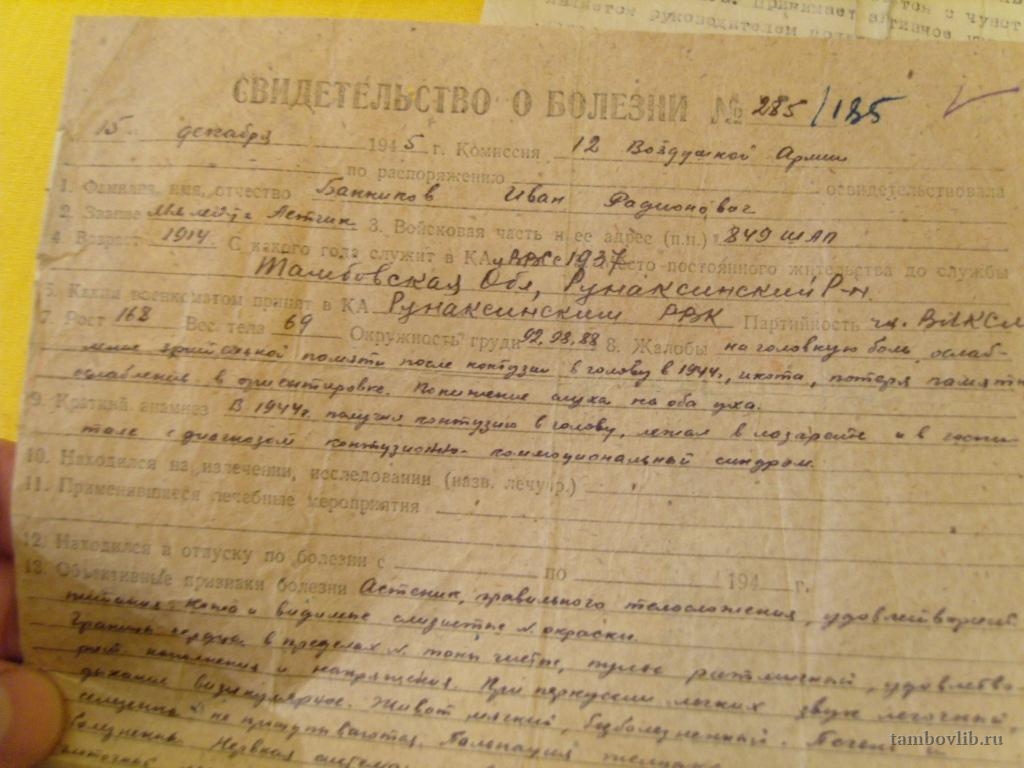 СВИДЕТЕЛЬСТВО О БОЛЕЗНИ № 285/185
15 декабря 1945 г. Комиссия 12 Воздушной Армии
по распоряжению освидетельствовала
1. Фамилия, имя, отчество Банников Иван Радионович
2. Звание Летчик 3. Войсковая часть и ее адрес (п.п.) 849 ШАП
4. Возраст 1914 С какого года служит в КА 1937 место постоянного жительства до службы
Тамбовская Обл, Рунаксинский Р-н.
5. Каким военкоматом принят в КА Рунаксинским РВК Партийность чл. ВЛКСМ
7. Рост 168 Вес тела 69 Окружность груди 92.98.88 8. Жалобы на головную боль, ослаб-
ление зрительной помяти после контузии в голову в 1944г., икота, потеря памяти
ослабление в ориентировке. Понижение слуха на оба уха.
9. Краткий анамнез В 1944г. получил контузию в голову, лежал в лозарете и в госпи-
тале с диагнозом контузионно-коммоциональный синдром.
10. Находился на излечении, исследовании (назв. леч. учр.)
11. Применявшиеся лечебные мероприятия
12. Находился в отпуску по болезни с по 194 г.
13. Объективные признаки болезни Астеник, правильного телосложения, удовлетворит.
питания. Кожа и видимые слизистые N. окраски.
Границы сердца в пределах N. тоны чистые, пульс ритмичный, удовлетво-
рит. наполнения и напряжения. При перкуссии легких звук легочный,
дыхание везикулярное. Живот мягкий, безболезненный. Печень и
селезенка не прощупываются. Пальпация
болезненна. Нервная
tambovlib.ru